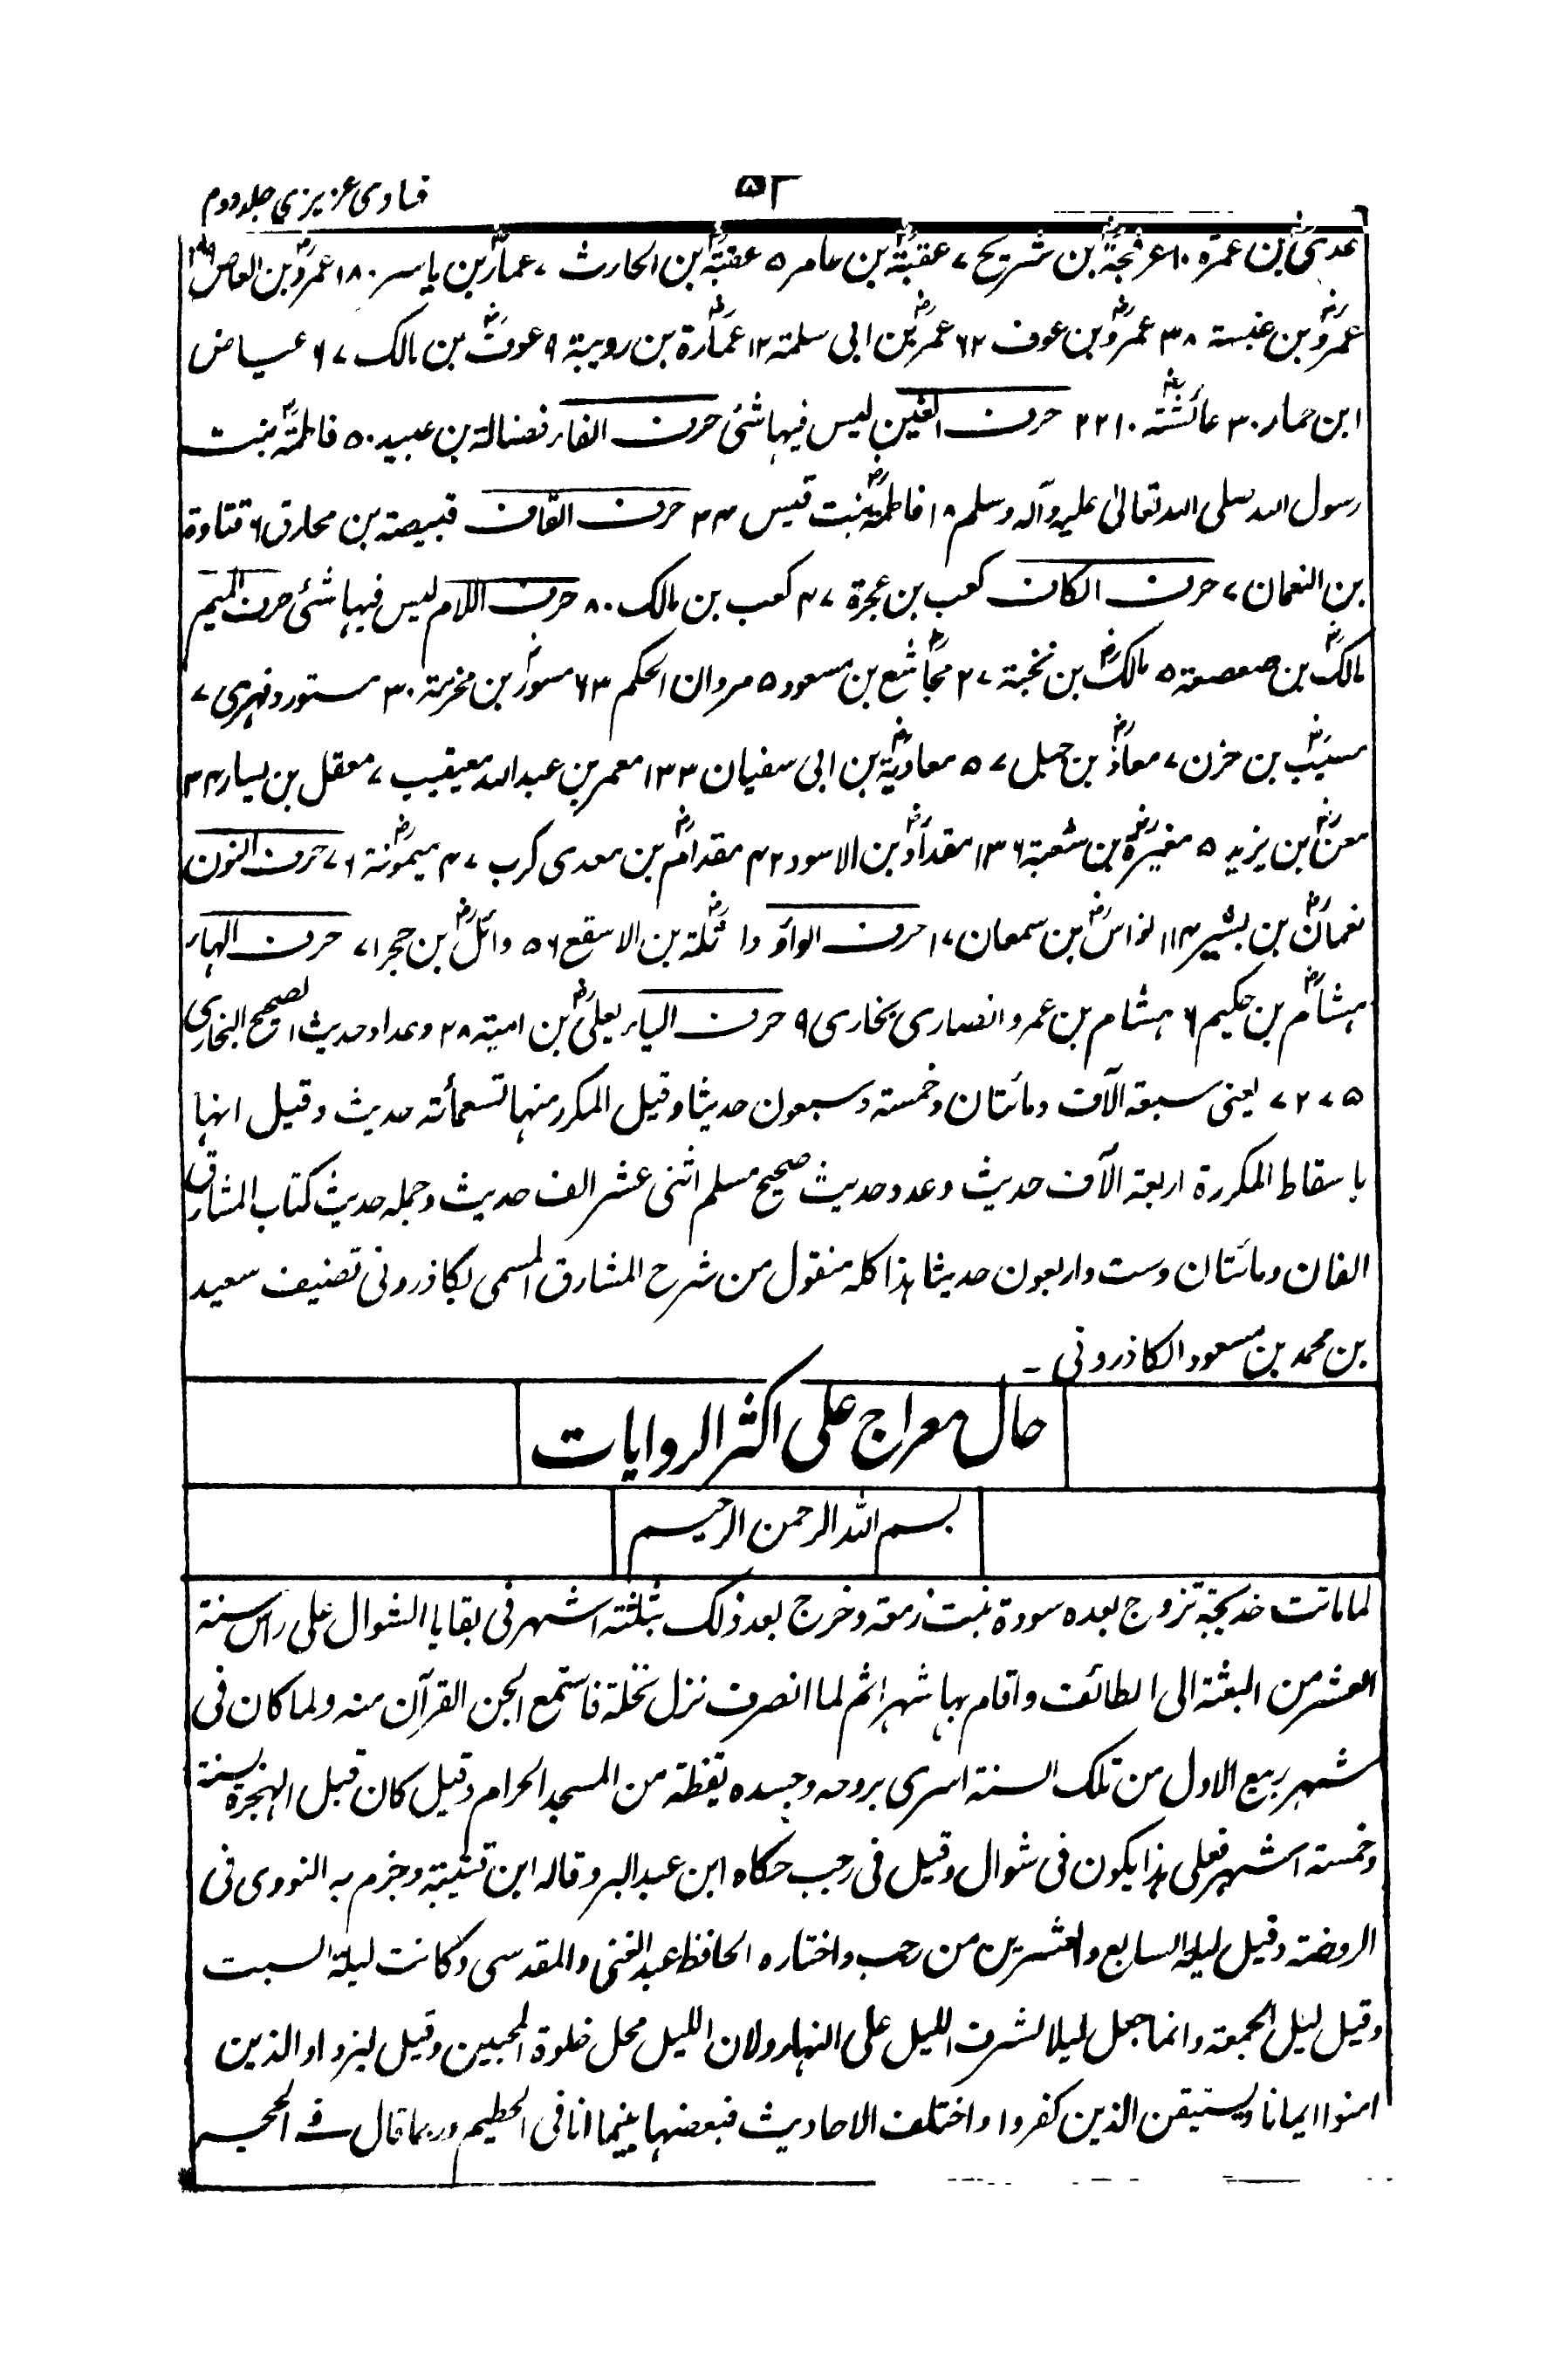 فتاوی عزیزی جلد دوم
۵۲
عدیؓ بن عمرۃ ۱۰ عرفجۃؓ بن شریح ۷ عقبۃؓ بن عامر ۵ عقبۃؓ بن الحارث ۷ عمارؓ بن یاسر ۱۸۰ عمروؓ بن العاص
عمروؓ بن عنبسۃ ۳۸ عمروؓ بن عوف ۶۲ عمرؓ بن ابی سلمۃ ۱۲ عمارۃؓ بن رویبۃ ۹ عوفؓ بن مالک ۶۷ عیاض
ابن حمار ۳۰ عائشۃؓ ۲۲۱۰ حرف الغین لیس فیہا شئ حرف الفاء فضالۃ بن عبید ۵۰ فاطمۃؓ بنت
رسول اللہ صلی اللہ تعالیٰ علیہ وآلہ وسلم ۱۸ فاطمۃؓ بنت قیس ۳۴ حرف القاف قبیصۃ بن محارق ۶ قتاوۃ
بن النعمان ۷ حرف الکاف کعب بن عجرۃ ۴۷ کعب بن مالک ۸۰ حرف اللام لیس فیہا شئ حرف المیم
مالکؓ بن صعصعۃ ۵ مالکؓ بن نخبۃ ۲۷ مجاشعؓ بن مسعود ۵ مروان الحکم ۶۳ مسورؓ بن مخرمۃ ۳۰ مستورد فہری ۷
مسیبؓ بن حزن ۷ معاذؓ بن جبل ۵۷ معاویۃؓ بن ابی سفیان ۱۳۳ معمر بن عبداللہ معیقیب ۷ معقل بن یسار ۳۴
معنؓ بن یزید ۵ مغیرۃؓ بن شعبۃ ۱۳۶ مقدادؓ بن الاسود ۴۲ مقدامؓ بن معدی کرب ۴۷ میمونۃؓ ۷۶ حرف النون
نعمانؓ بن بشیر ۱۱۴ نواسؓ بن سمعان ۱۷ حرف الواو واثلۃؓ بن الاسقع ۵۶ وائلؓ بن حجر ۷۱ حرف الہاء
ہشامؓ بن حکیم ۶ ہشام بن عمرو انصاری بخاری ۹ حرف الیاء یعلیؓ بن امیۃ ۲۸ وعداد حدیث الصحیح البخاری
۷۲۷۵ یعنی سبعۃ الآف ومائتان وخمسۃ وسبعون حدیثا وقیل المکرر منہا تسعمأتہ حدیث وقیل انہا
باسقاط المکررۃ اربعۃ الآف حدیث وعدد حدیث صحیح مسلم اثنی عشر الف حدیث وجملہ حدیث کتاب المشارق
الفان ومائتان وست واربعون حدیثا ہذا کلہ منقول من شرح المشارق المسمی بکاذرونی تصنیف سعید
بن محمد بن مسعود الکاذرونی ۔
حال معراج علی اکثر الروایات
بسم اللہ الرحمن الرحیم
لما ماتت خدیجۃ تزوج بعدہ سودۃ بنت زمعۃ وخرج بعد ذلک بثلثۃ اشہر فی بقایا الشوال علی راس سنۃ
العشر من البعثۃ الی الطائف واقام بہا شہرا ثم لما انصرف نزل نخلۃ فاستمع الجن القرآن منہ ولما کان فی
شہر ربیع الاول من تلک السنۃ اسری بروحہ وجسدہ یقظۃ من المسجد الحرام وقیل کان قبل الہجرۃ بسنۃ
وخمسۃ اشہر فعلی ہذا یکون فی شوال وقیل فی رجب حکاہ ابن عبد البر وقالہ ابن قتیبۃ وجزم بہ النووی فی
الروضۃ وقیل لیلۃ السابع والعشرین من رجب واختارہ الحافظ عبد الغنی والمقدسی وکانت لیلۃ السبت
وقیل لیل الجمعۃ وانما جعل لیلا لشرف اللیل علی النہار ولان اللیل محل خلوۃ المحبین وقیل لیزداد الذین
امنوا ایمانا ولیستیقن الذین کفروا واختلف الاحادیث فبعضہا بینما انا فی الحطیم وربما قال فی الحجر